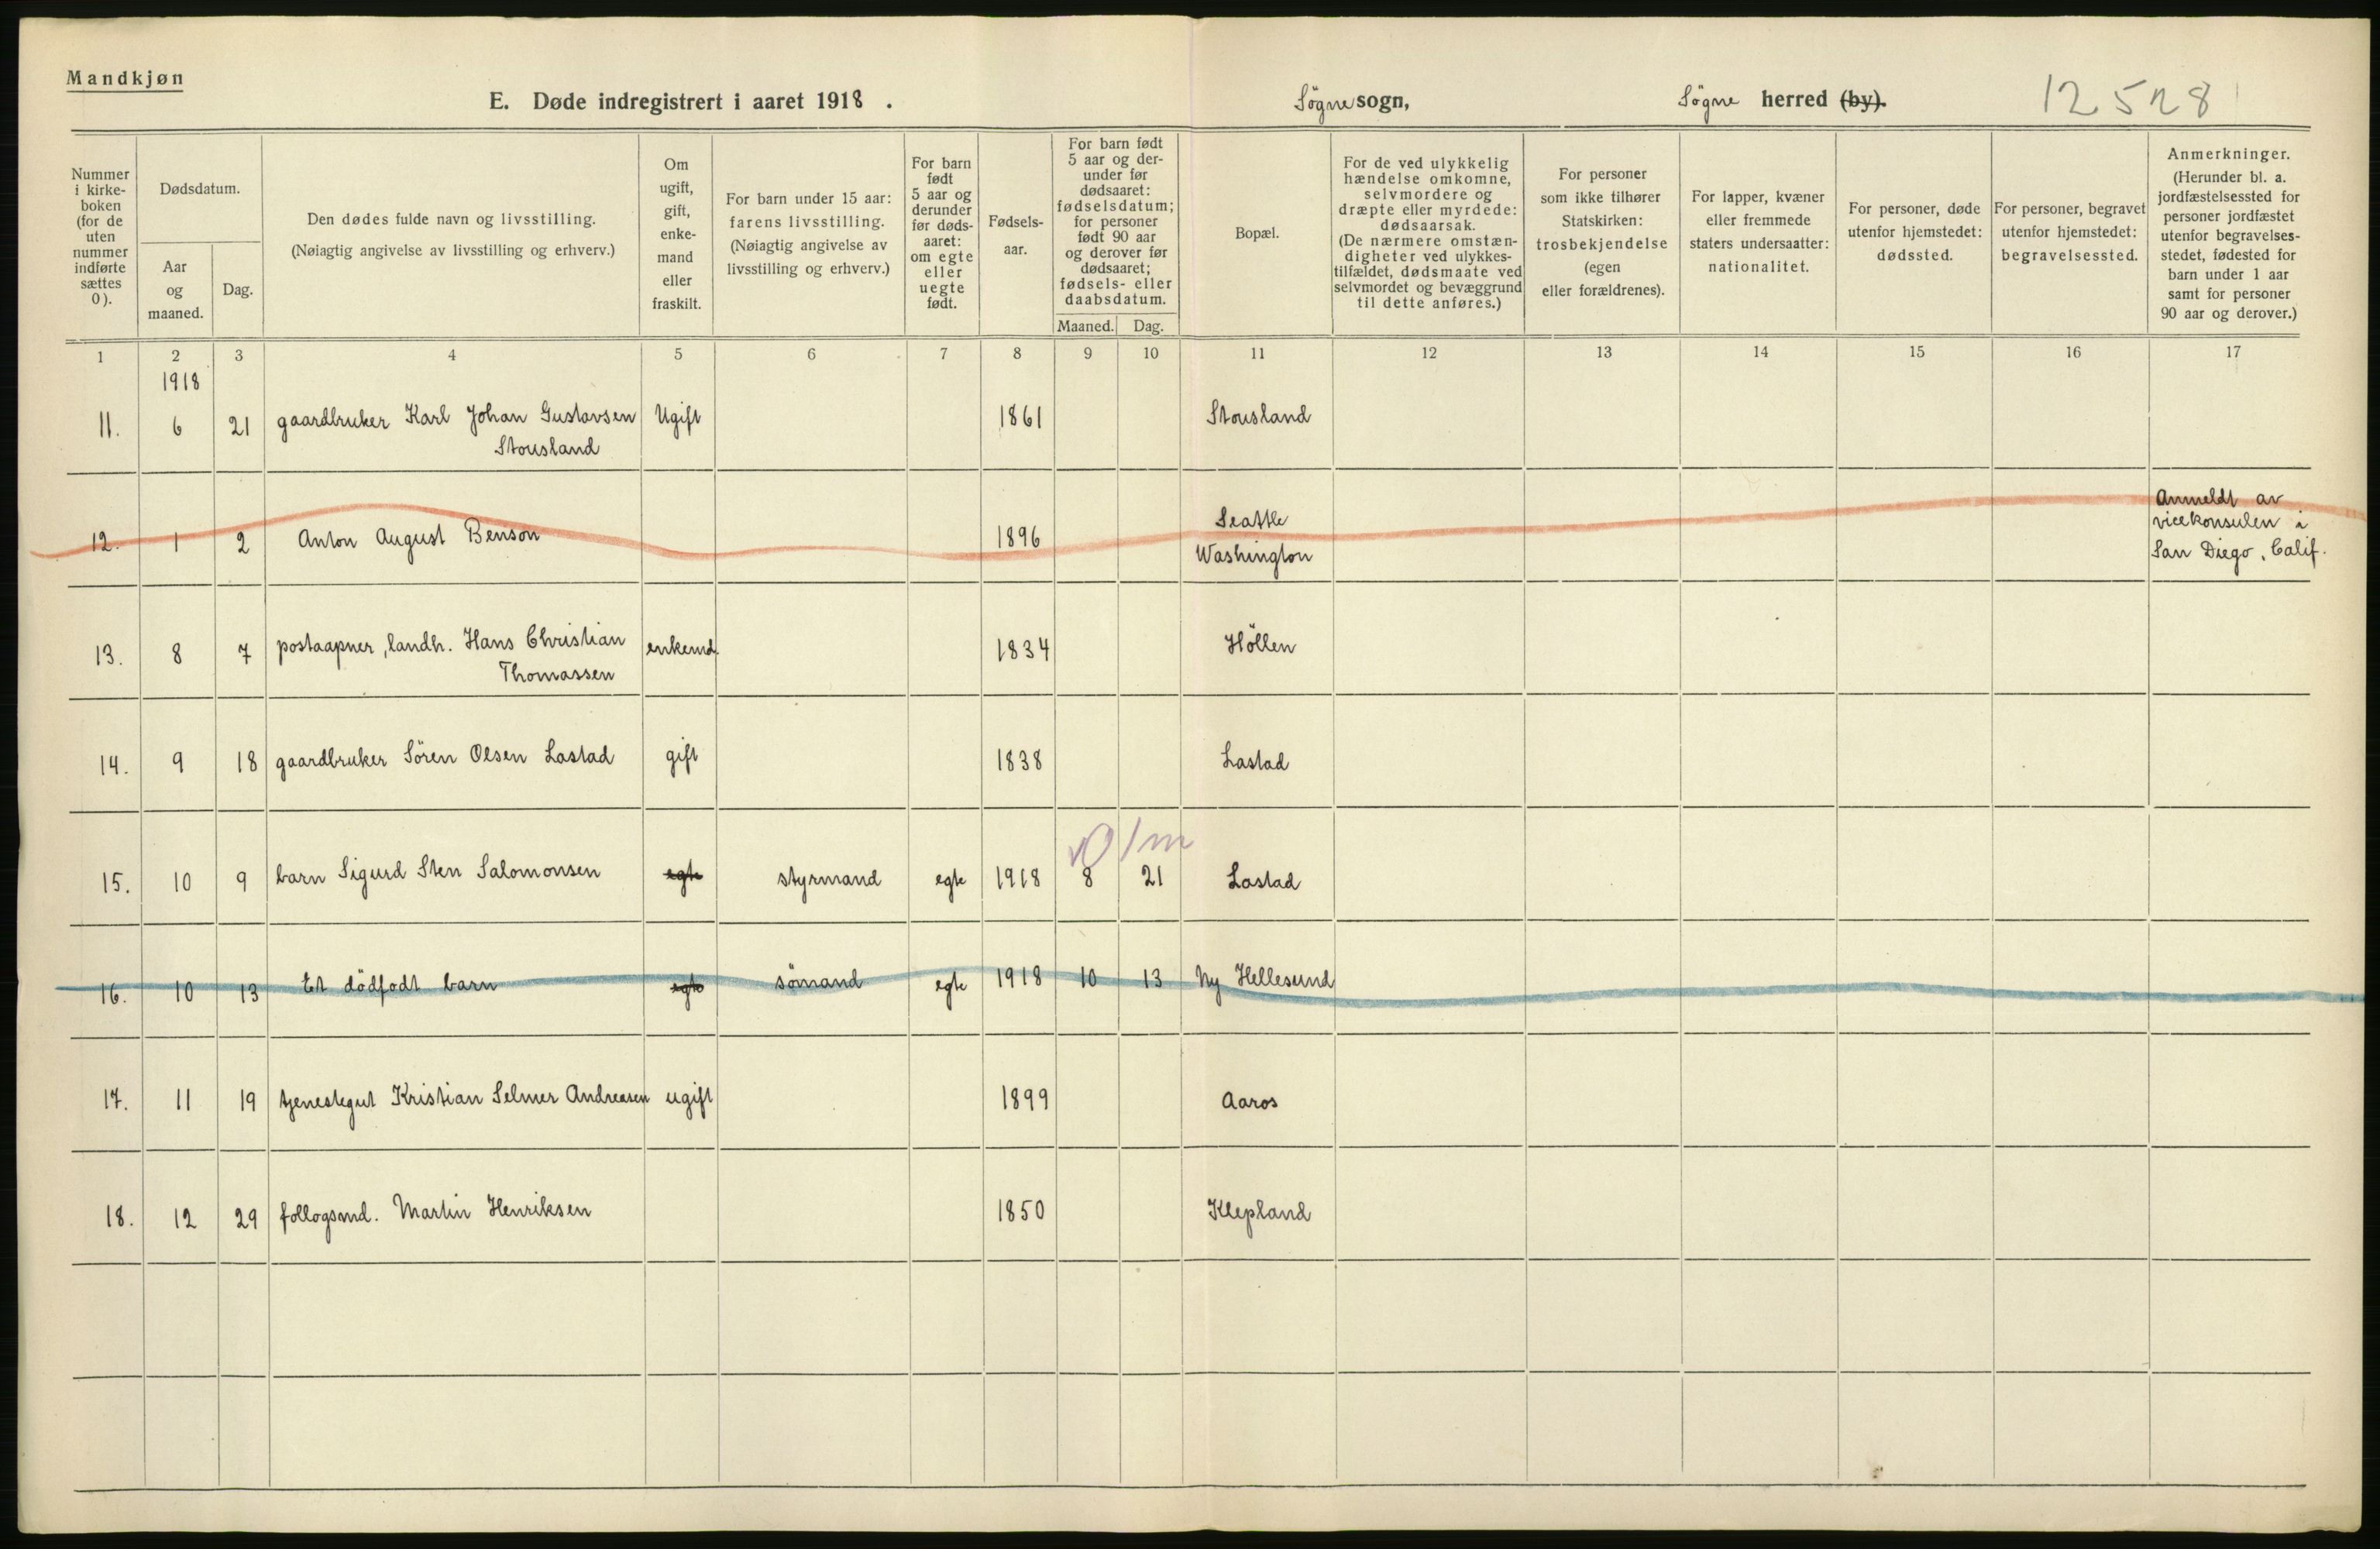 Mandkjøn
E. Døde indregistrert i aaret 1918 .
Søgne sogn,
Søgne herred (by).
12528
Nummer i kirke- boken (for de uten nummer indførte sættes 0).
Dødsdatum.
Aar og maaned.
Dag.
Den dødes fulde navn og livsstilling.
(Nøiagtig angivelse av livsstilling og erhverv.)
Om ugift, gift, enke- mand eller fraskilt.
For barn under 15 aar: farens livsstilling.
(Nøiagtig angivelse av livsstilling og erhverv.)
For barn født 5 aar og derunder før døds- aaret: om egte eller uegte født.
Fødsels- aar.
For barn født 5 aar og der- under før dødsaaret: fødselsdatum; for personer født 90 aar og derover før dødsaaret; fødsels- eller daabsdatum.
Maaned. Dag.
Bopæl.
For de ved ulykkelig hændelse omkomne, selvmordere og dræpte eller myrdede: dødsaarsak.
(De nærmere omstæn- digheter ved ulykkes- tilfældet, dødsmaate ved selvmordet og bevæggrund til dette anføres.)
For personer som ikke tilhører Statskirken: trosbekjendelse (egen eller forældrenes).
For lapper, kvæner eller fremmede staters undersaatter: nationalitet.
For personer, døde utenfor hjemstedet: dødssted.
For personer, begravet utenfor hjemstedet: begravelsessted.
Anmerkninger.
(Herunder bl. a. jordfæstelsessted for personer jordfæstet utenfor begravelses- stedet, fødested for barn under 1 aar samt for personer 90 aar og derover.)
1 2 3 4 5 6 7 8 9 10 11 12 13 14 15 16 17
1918
11. 6 21 gaardbruker Karl Johan Gustavsen Ugift 1861 Stousland
Stousland
12. 1 2 Anton August Benson 1896 Seattle Washington Anmeldt av
vicekonsulen i
San Diego, Calif.
13. 8 7 postaapner, landh. Hans Christian enkemd. 1834 Höllen
Thomassen
14. 9 18 gaardbruker Sören Olsen Lastad gift 1838 Lastad
1m
15. 10 9 barn Sigurd Sten Salomonsen egte styrmand egte 1918 8 21 Lastad
16. 10 13 Et dödfodt barn egte sömand egte 1918 10 13 Ny Hellesund
17. 11 19 tjenestegut Kristian Selmer Andreasen ugift 1899 Aaros
18. 12 29 follogsmd. Martin Henriksen 1850 Klepland